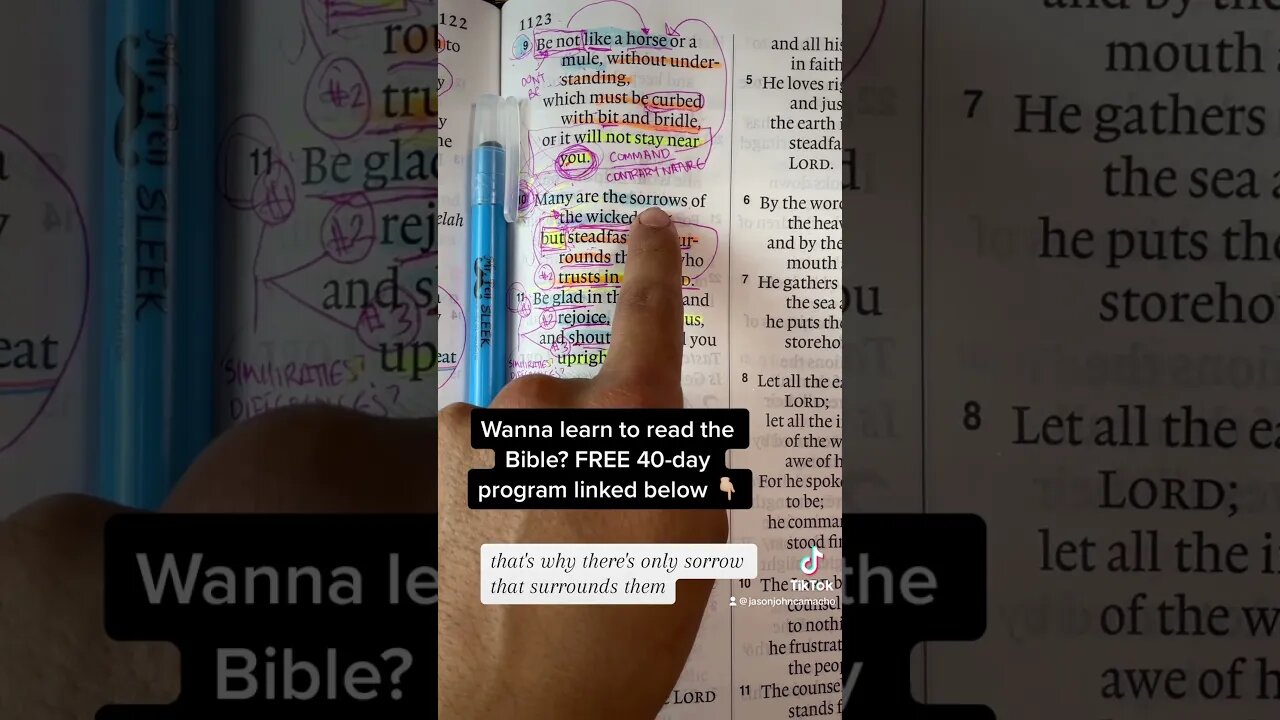 1123
9 Be not like a horse or a
mule, without under-
standing,
which must be curbed
with bit and bridle,
or it will not stay near
you.
DON'T BE
COMMAND
CONTRARY NATURE
10 Many are the sorrows of
the wicked
but steadfas ur-
rounds th who
#2 trusts in D.
11 Be glad in th and
#2 rejoice, us,
and shout l you
#3 uprigh
SIMILARITIES?
DIFFERENCES?
Mr. Pen SLEEK
and all his
in faith
5 He loves rig
and jus
the earth i
steadfa
LORD.
6 By the wor
the heav
and by the
mouth
7 He gathers
the sea a
he puts the
storeho
8 Let all the ea
LORD;
let all the i
of the w
awe of h
For he spok
to be;
he comman
stood fi
10 The
counsel
to nothi
he frustrat
the peop
11 The counse
stands f
Wanna learn to read the
Bible? FREE 40-day
program linked below 👇🏼
that's why there's only sorrow
that surrounds them
TikTok
@jasonjohncamacho
122
ro
#2
tru
11 Be glad
#2 rej
and s
#3
up
Mr. Pen SLEEK
to
he
elah
eat
LORD
and by the
mouth
7 He gathers
the sea a
he puts the
storeho
8 Let all the ea
LORD;
let all the i
of the w
awe of h
Wanna le the
Bible?